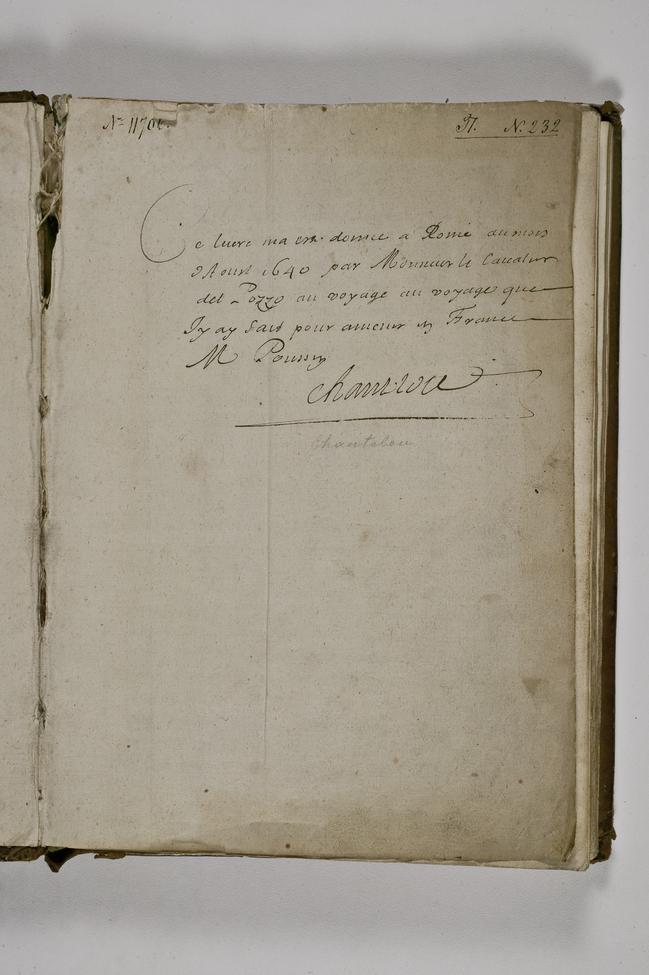 Nº 1170
П. N. 232
Ce livre ma esté donné a Rome au mois
d'Aoust 1640 par Monsieur le Cavalier
del Pozzo au voyage au voyage que
J'y ay fait pour amener en France
M Poussin
Chantelou
Chantelou